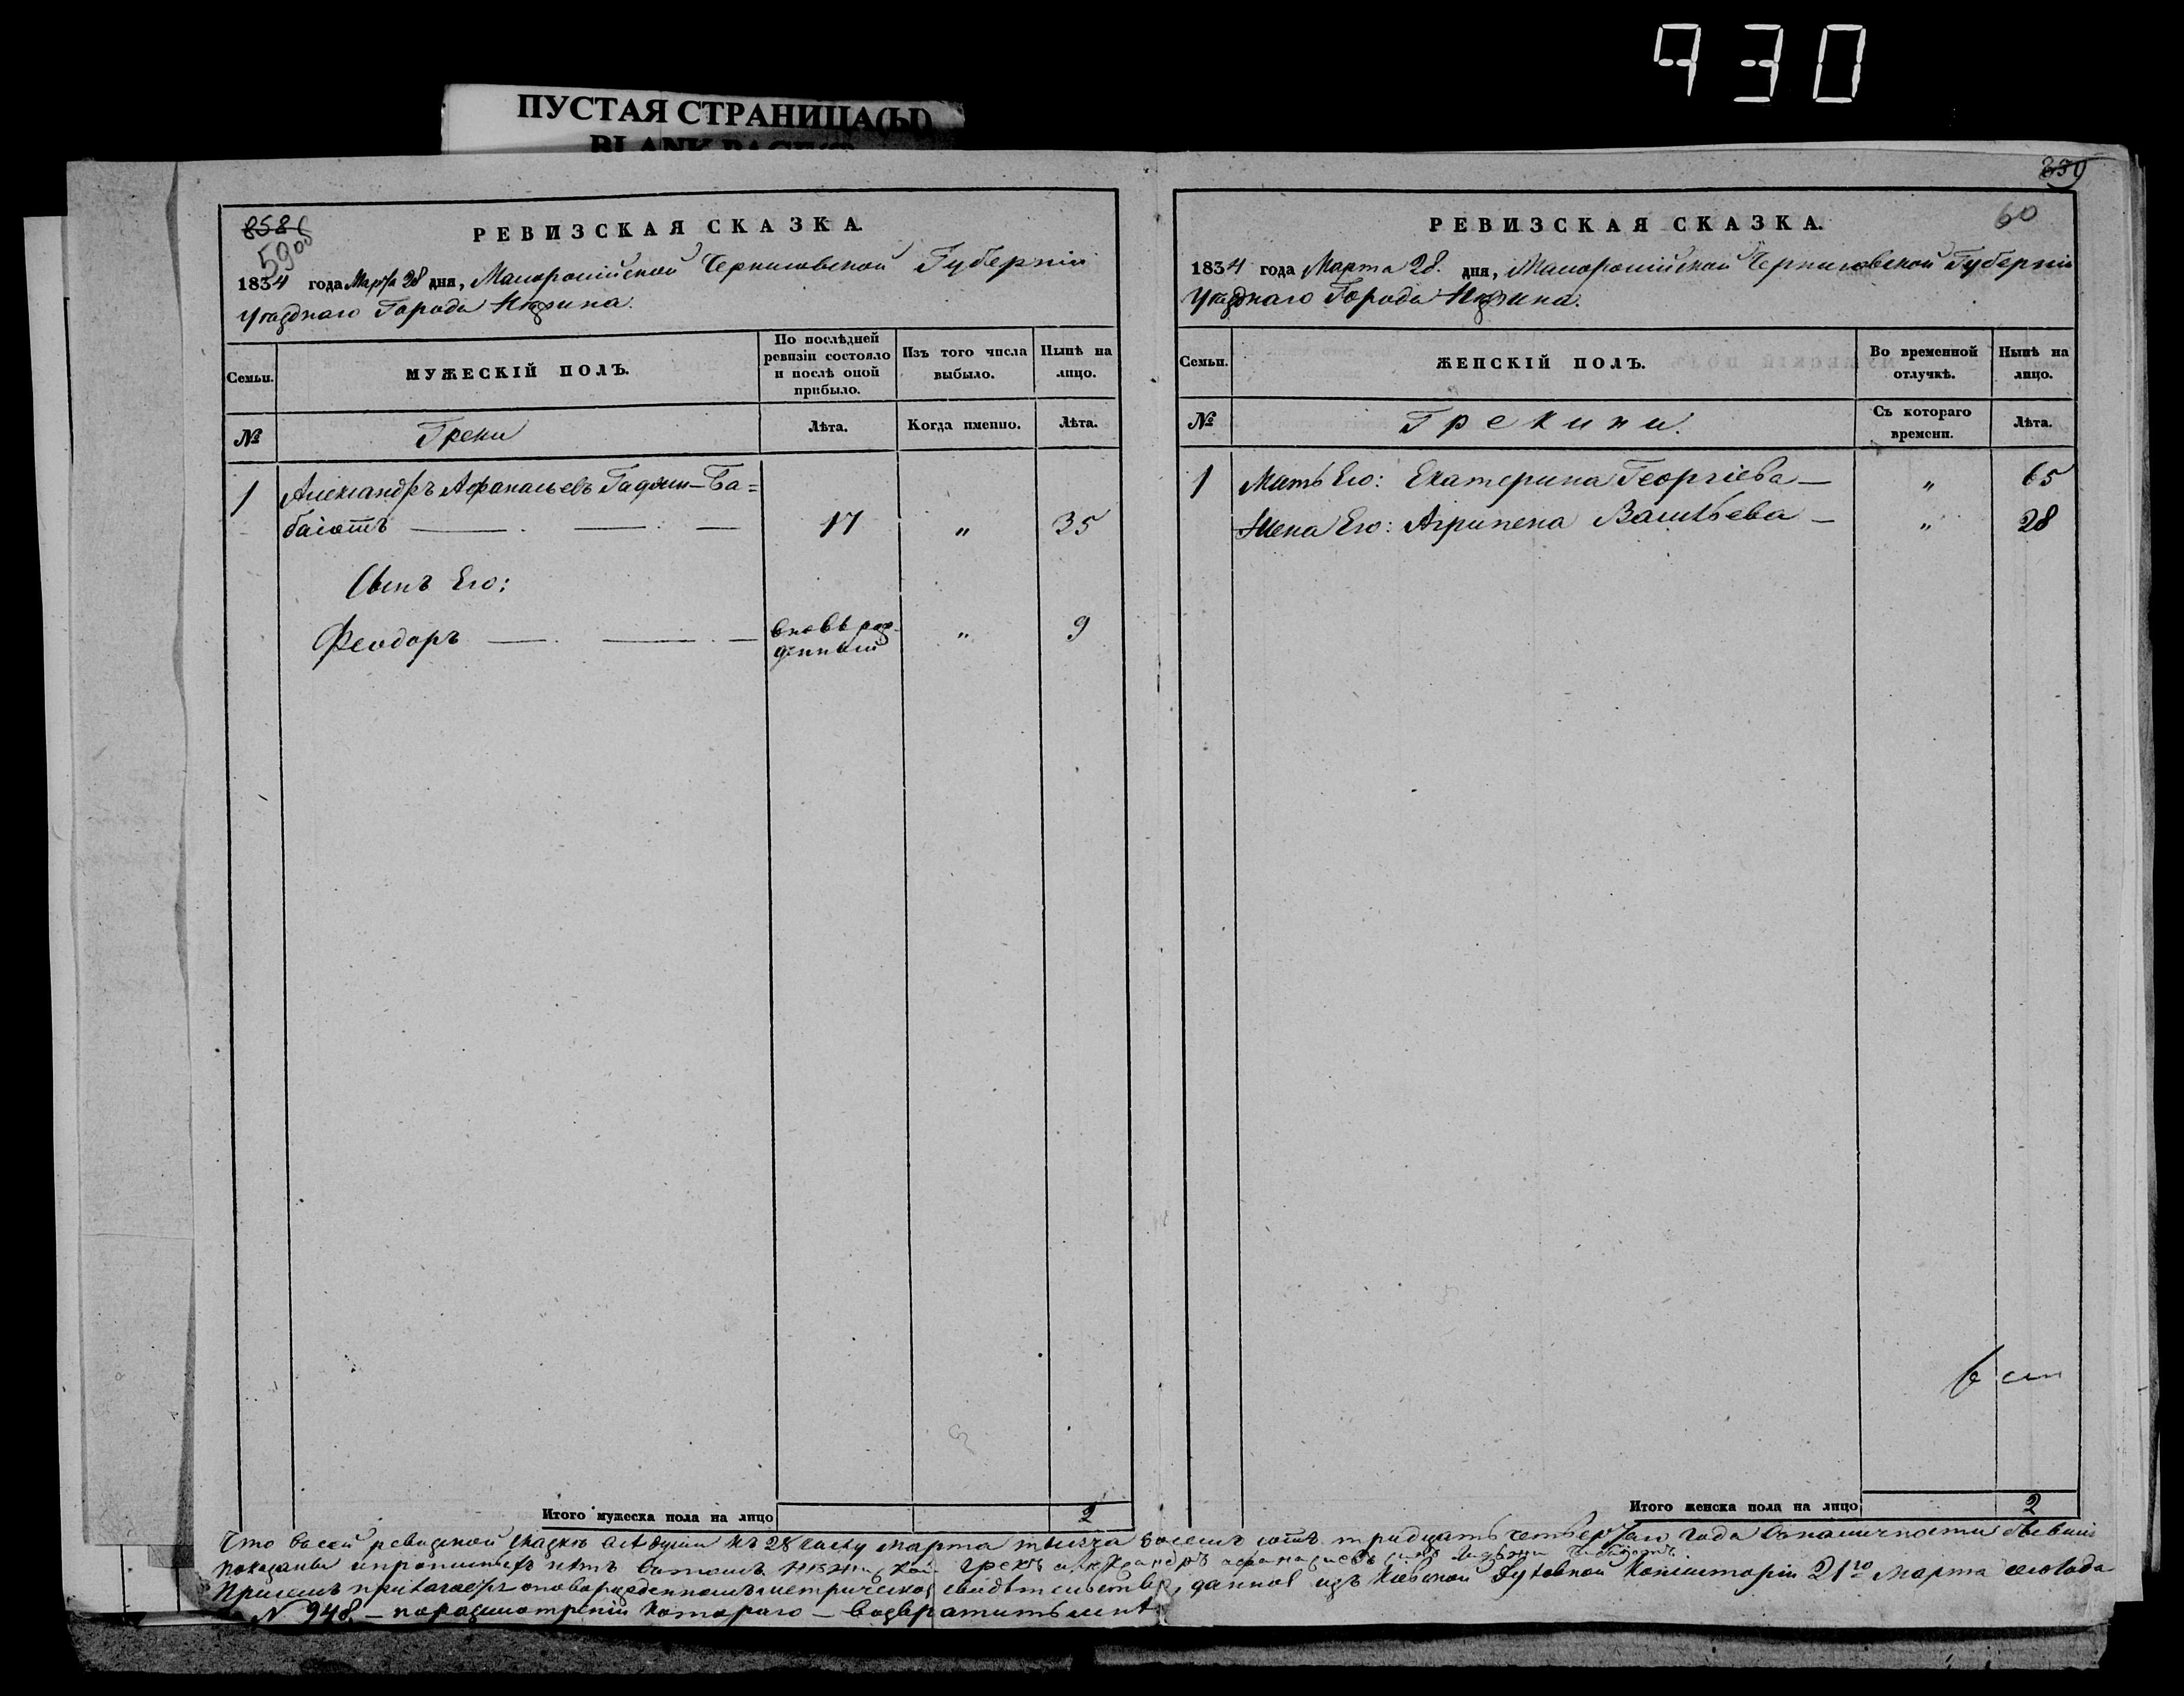 930
ПУСТАЯ СТРАНИЦА(Ы)
BLANK PAGE(S)
858
59об
РЕВИЗСКАЯ СКАЗКА.
1834 года Марта 28 дня, Малороссійской Черниговской Губерніи
Уѣзднаго Города Нѣжина.
Семьи.
МУЖЕСКІЙ ПОЛЪ.
По послѣдней ревизіи состояло и послѣ оной прибыло.
Изъ того числа выбыло.
Нынѣ на лицо.
№
Греки
Лѣта.
Когда именно.
Лѣта.
1 Александръ Афанасьевъ Гаджи-Ба=
баіотъ — — — 17 „ 35
Сынъ Его:
Феодоръ — — — вновь рож- „ 9
денный
Итого мужеска пола на лицо 2
859
60
РЕВИЗСКАЯ СКАЗКА.
1834 года Марта 28. дня, Малороссійской Черниговской Губерніи
Уѣзднаго Города Нѣжина.
Семьи.
ЖЕНСКІЙ ПОЛЪ.
Во временной отлучкѣ.
Нынѣ на лицо.
№
Грекини.
Съ котораго времени.
Лѣта.
1 Мать Его: Екатерина Георгіева — „ 65
Жена Его: Агрипена Васильева — „ 28
Итого женска пола на лицо 2
Что въ сей ревизкой сказкѣ всѣ души къ 28 числу марта тысяча восемь сотъ тридцать четвертаго года въ наличности бывшіе
показаны и прописныхъ нѣтъ въ томъ грекъ александръ афанасіевъ сынъ
При семъ прилагаетъ о новорожденномъ метрическое свидѣтельство, данное изъ Кіевской Духовной Консисторіи 21го марта сего года
N 948 — по разсмотреніи котораго — возвратить мнѣ